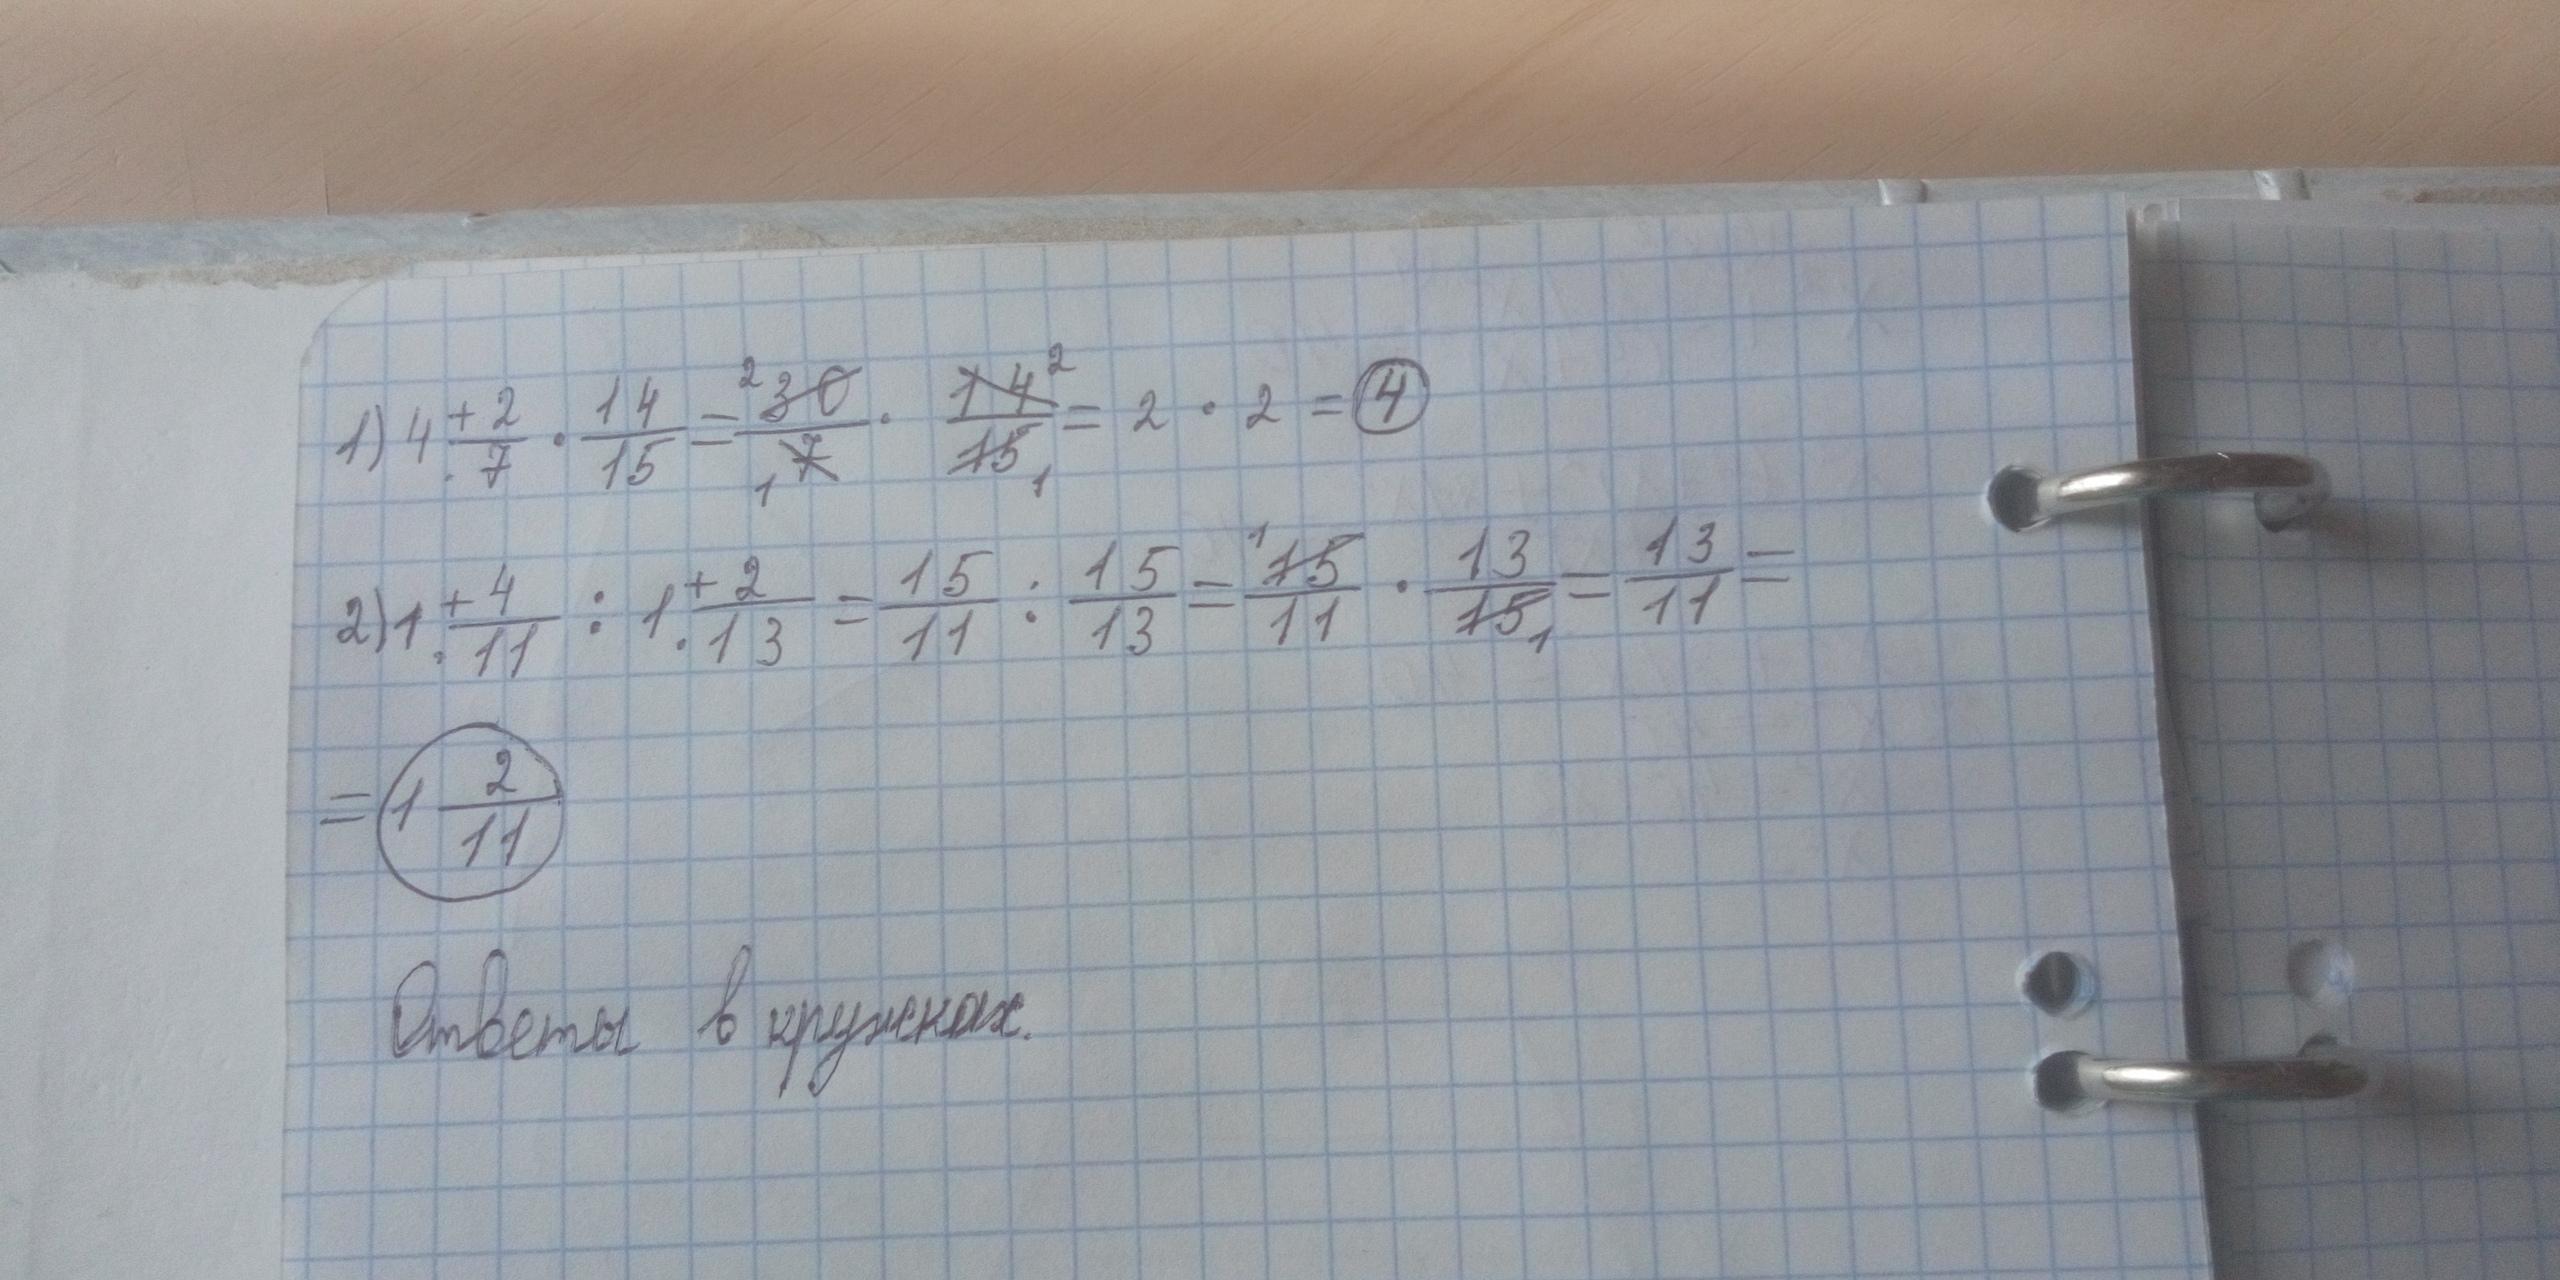 1) 4 + 2/7 · 14/15 = ² 30/7 ₁ · 14 ²/15 ₁ = 2 · 2 = 4
2) 1 + 4/11 : 1 + 2/13 = 15/11 : 15/13 = ¹ 15/11 · 13/15 ₁ = 13/11 =
= 1 2/11
Ответы в кружках.